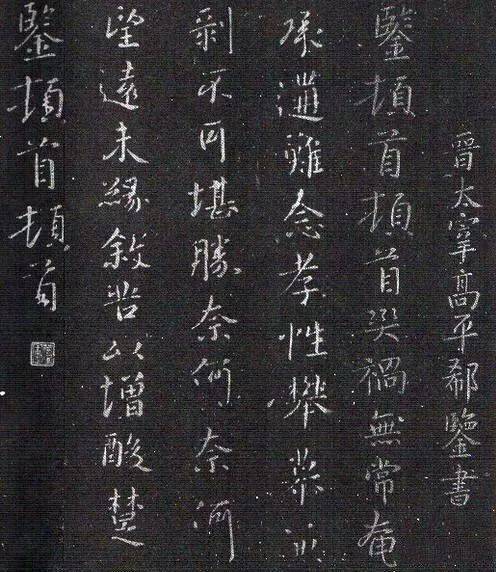 晉太宰高平郗鑒書
鑒頓首頓首災禍無常奄
承遘難念孝性攀慕兼
剝不可堪勝奈何奈何
望遠未緣敘苦以增酸楚
鑒頓首頓首